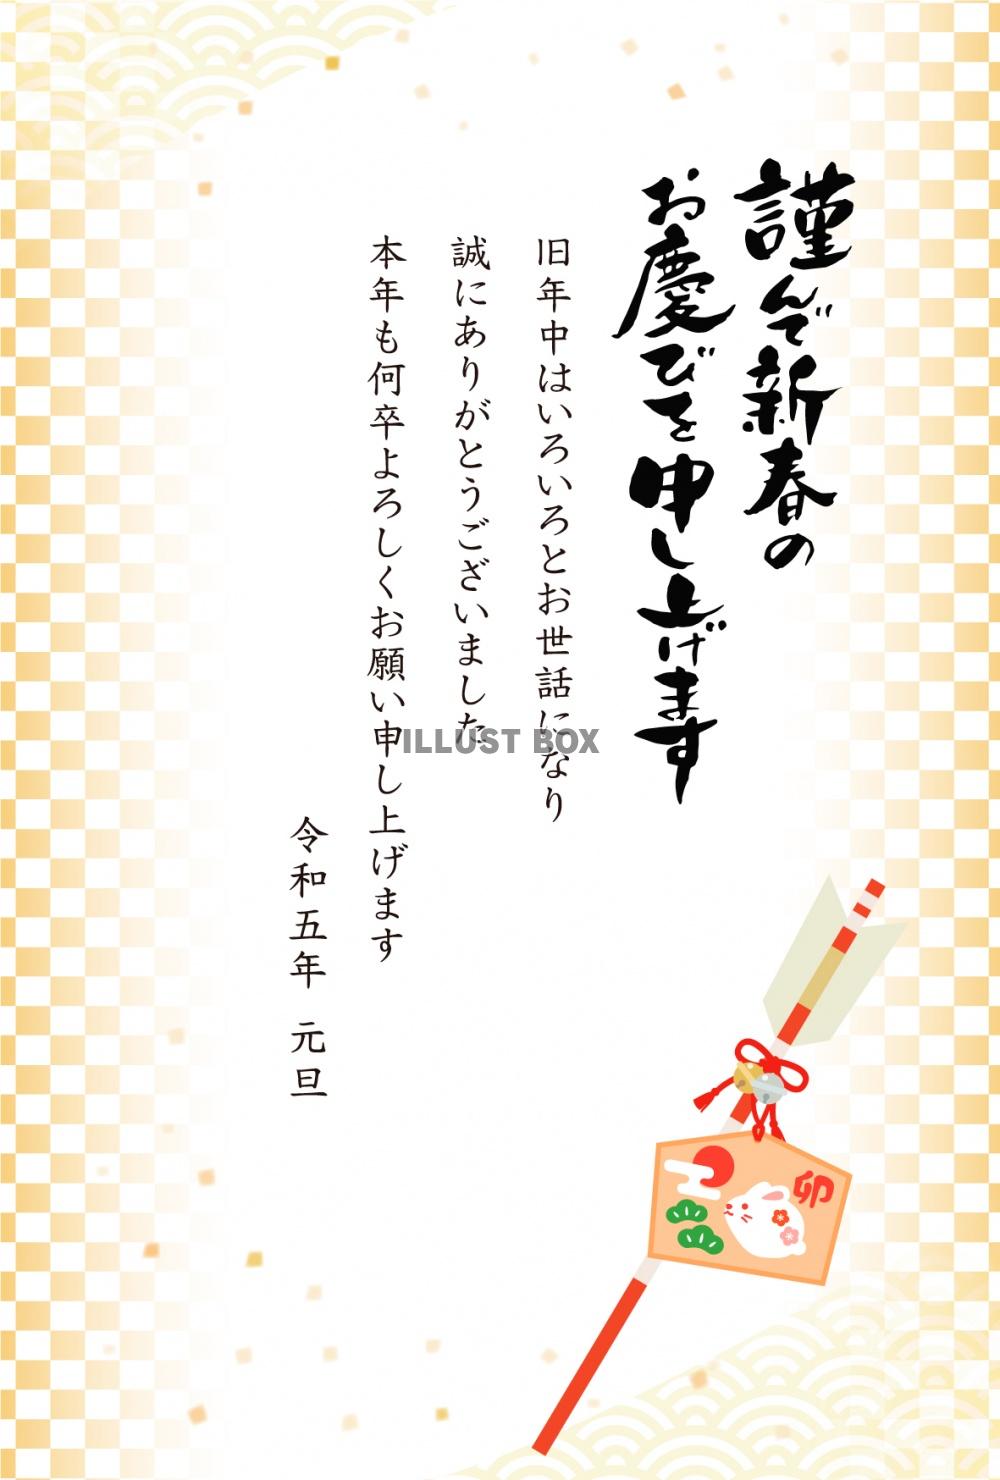 謹んで新春の
お慶びを申し上げます
旧年中はいろいろとお世話になり
誠にありがとうございました
本年も何卒よろしくお願い申し上げます
令和五年 元旦
ILLUST BOX
卯